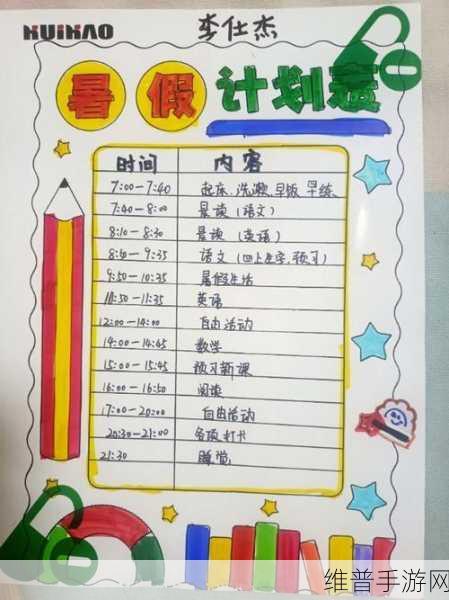 KUIKAO
李仕杰
暑假计划表
时间 内容
7:00-7:40 起床、洗漱、早饭、早练
7:40-8:00 晨读(语文)
8:10-8:30 晨读(英语)
8:40-9:35 语文(四上生字,预习)
9:50-10:35 暑假生活
10:50-11:35 英语
12:00-14:00 自由活动
14:00-14:45 数学
15:00-15:45 预习新课
16:00-16:50 阅读
17:00-20:00 自由活动
20:30-21:00 各项打卡
21:30 睡觉
维普手游网